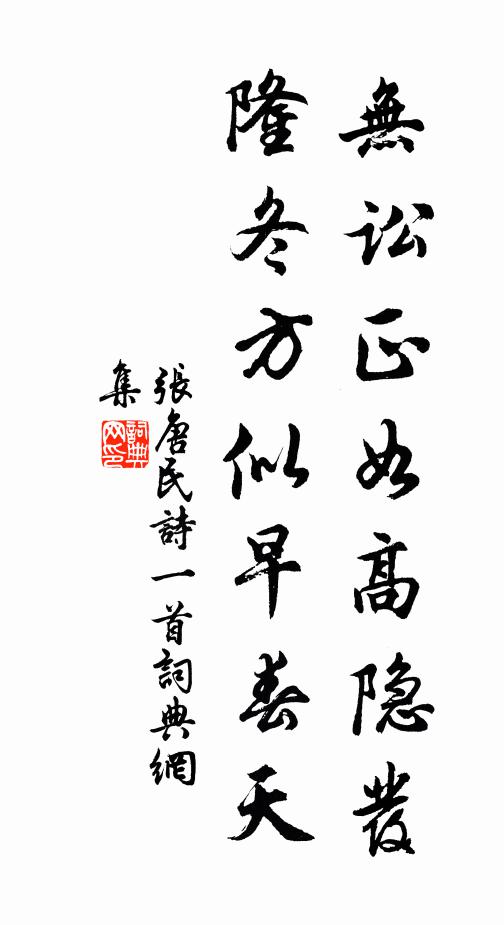 無訟正如高隐處
隆冬方似早春天
張唐民詩一首詞典網
集
詞典
网印